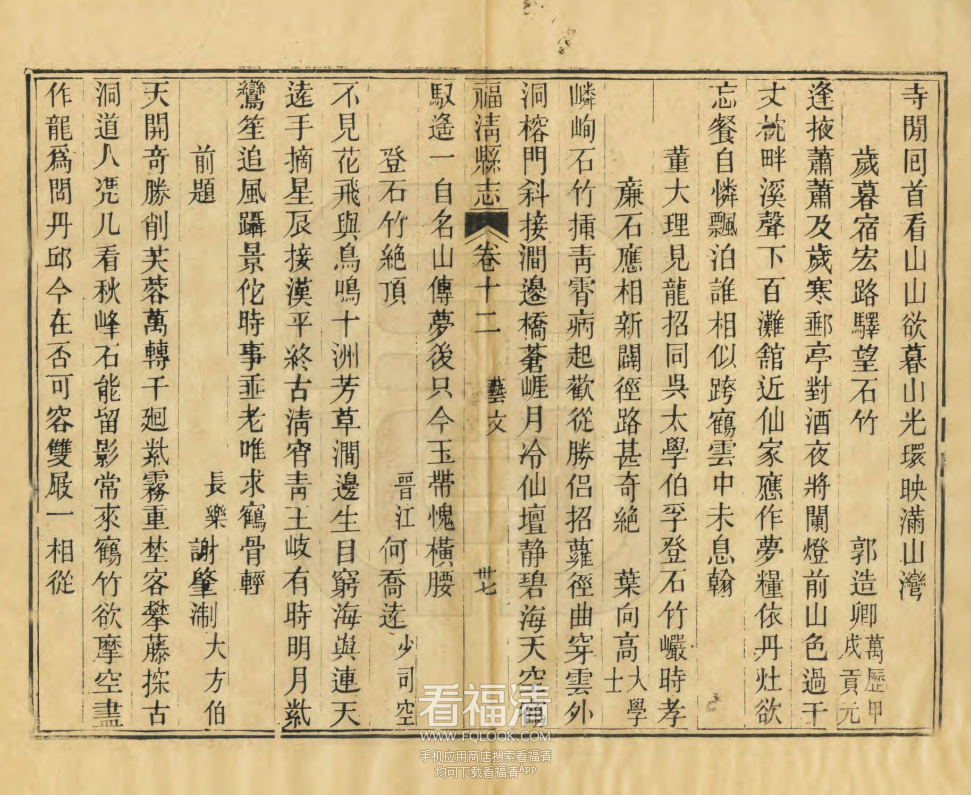 寺閒囘首看山山欲暮山光環映滿山灣
歲暮宿宏路驛望石竹 郭造卿 萬歷甲戌貢元
逢掖蕭蕭及歲寒郵亭對酒夜將闌燈前山色過千
丈枕畔溪聲下百灘舘近仙家應作夢糧依丹灶欲
忘餐自憐飄泊誰相似跨鶴雲中未息翰
董大理見龍招同吳太學伯孚登石竹巖時孝
廉石應相新闢徑路甚奇絕 葉向高 大學士
嶙峋石竹揷靑霄病起歡從勝侣招蘿徑曲穿雲外
洞榕門斜接澗邊橋蒼崕月冷仙壇静碧海天空
福清縣志 卷十二 藝文 卅七
馭遙一自名山傳夢後只今玉帶愧橫腰
登石竹絶頂 晋江 何喬逺 少司空
不見花飛與鳥鳴十洲芳草澗邊生目窮海與連天
逺手摘星辰接漢平終古淸宵靑王岐有時明月紫
鸞笙追風躡景佗時事垂老唯求鶴骨輕
前題 長樂 謝肇淛 大方伯
天開奇勝削芙蓉萬轉千廻紫霧重埜客攀藤探古
洞道人凭几看秋峰石能留影常來鶴竹欲摩空盡
作龍爲問丹邱今在否可容雙屐一相從
看福清
WWW.FQLOOK.COM
手机应用商店搜索看福清
均可下载看福清App